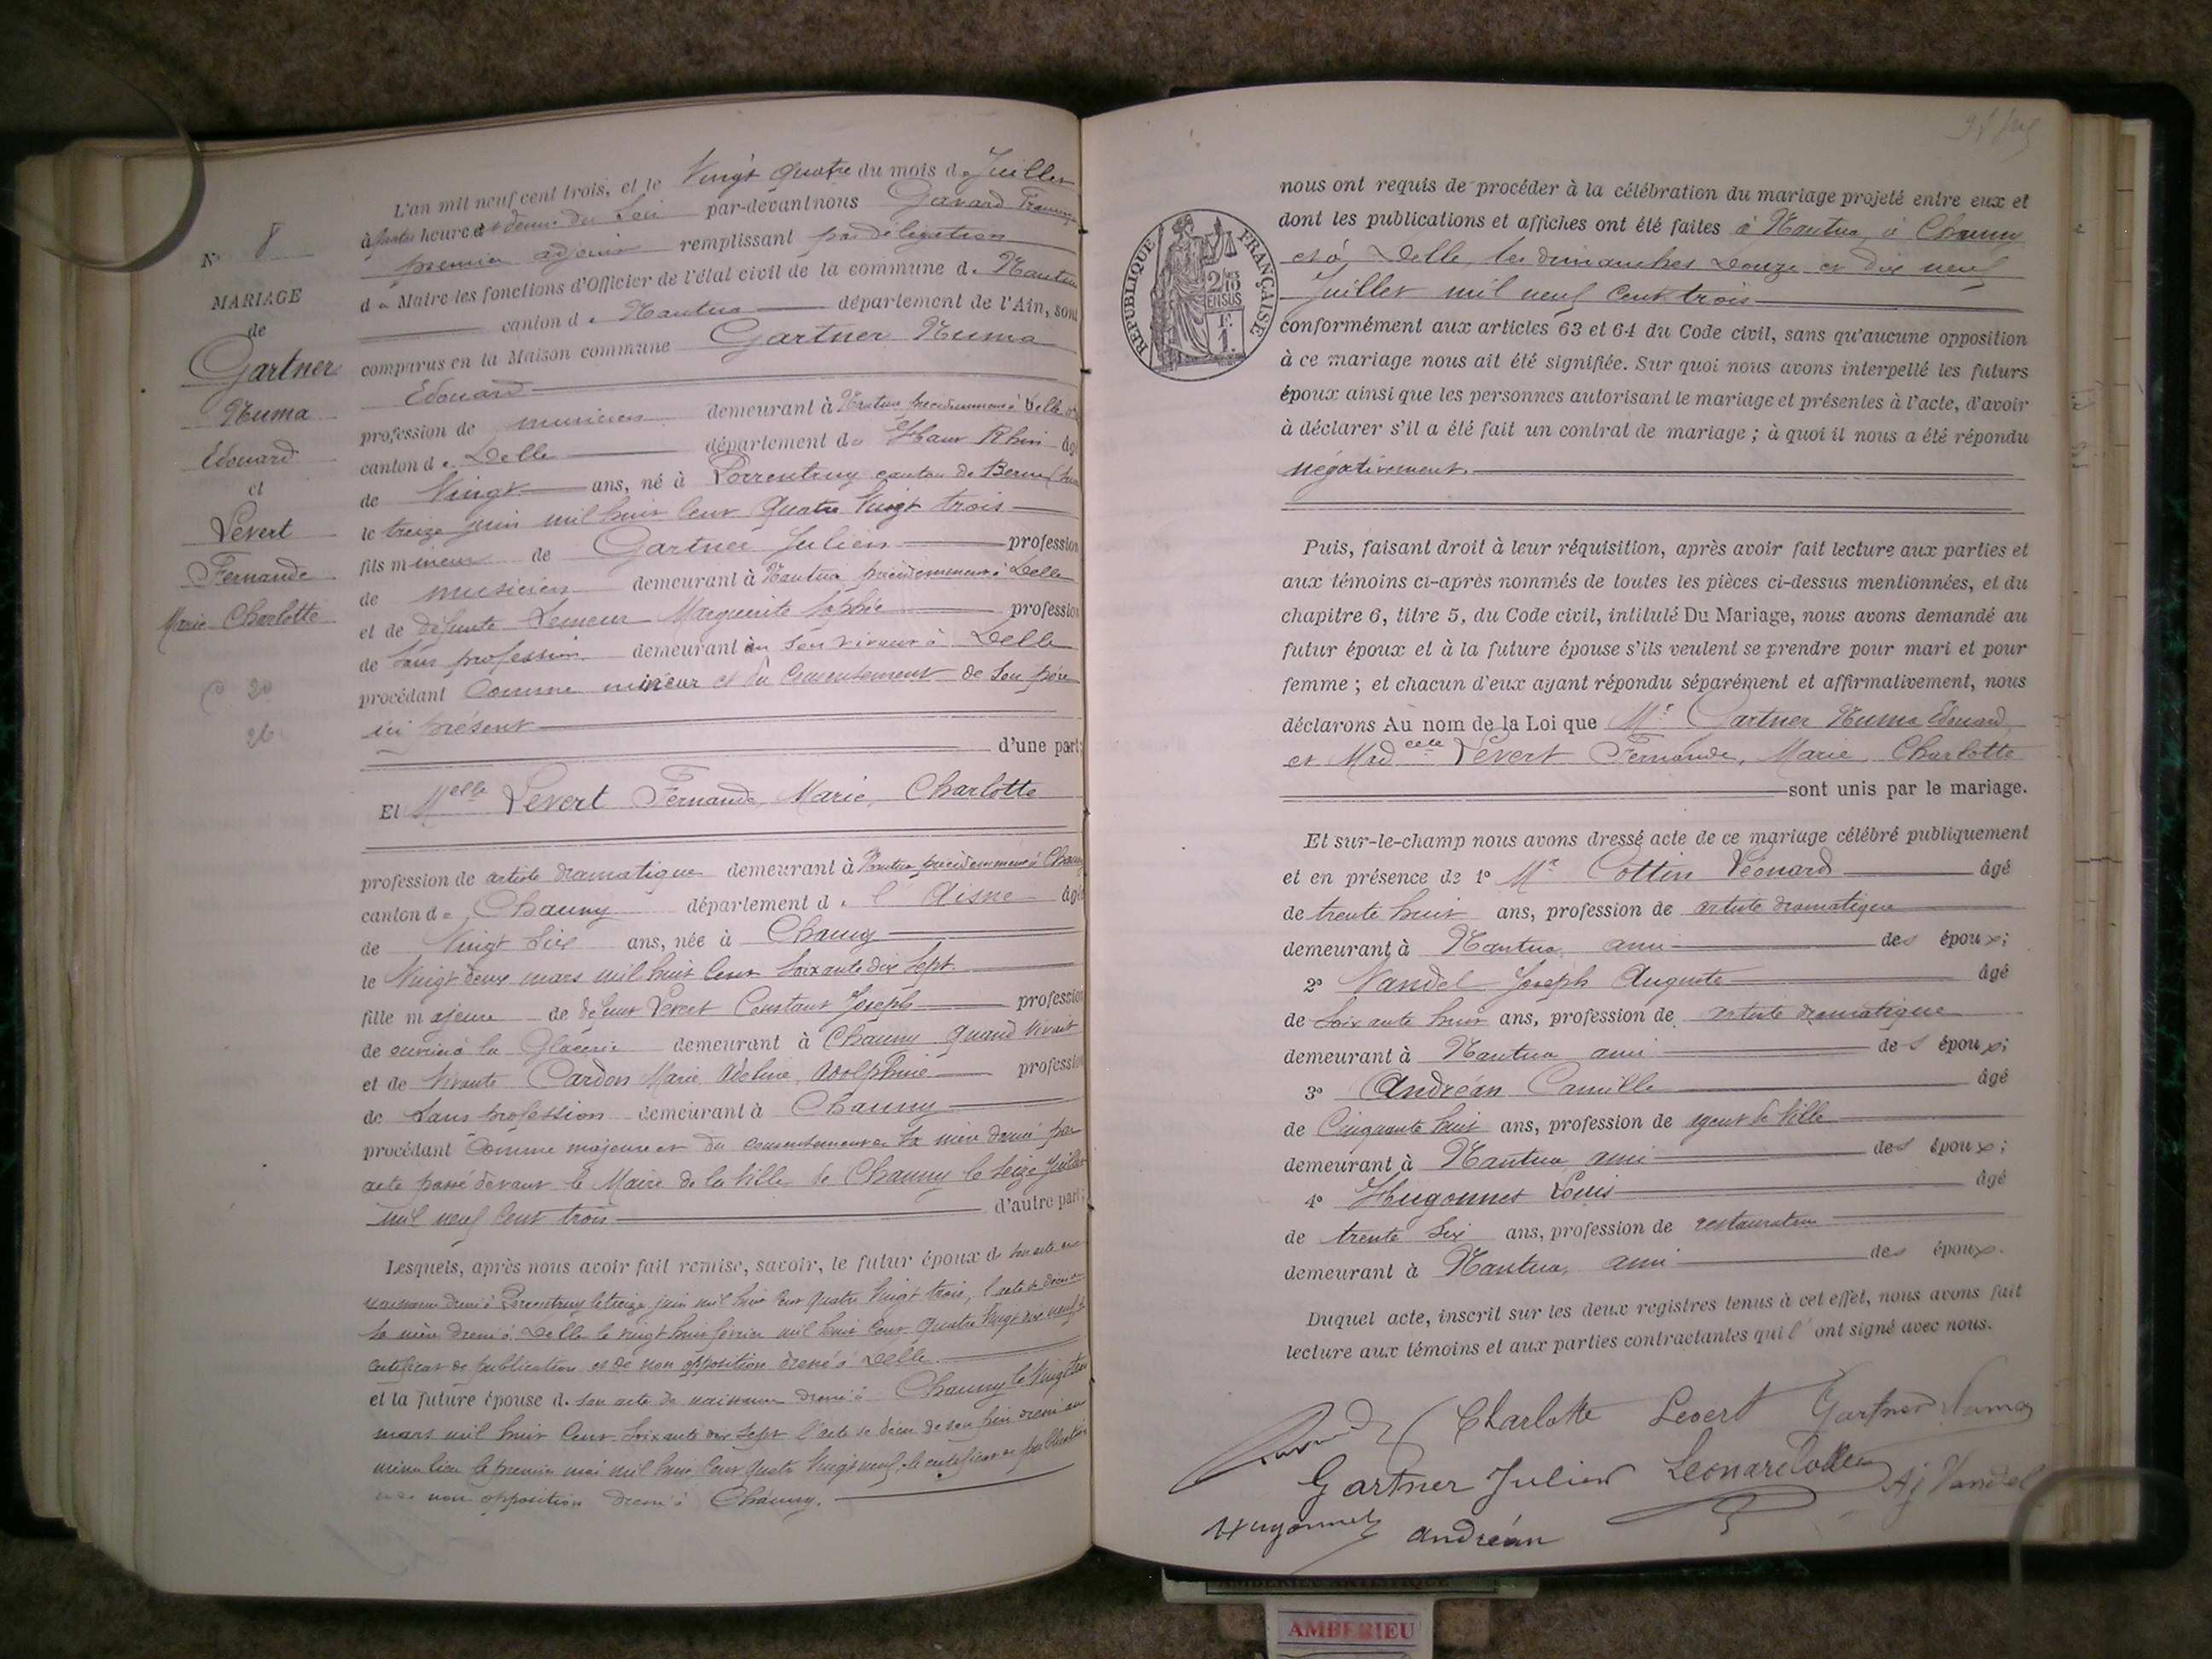 N° 8
MARIAGE
de
Gartner
Numa
Edouard
et
Levert
Fernande
Marie Charlotte
20
26
L'an mil neuf cent trois, et le Vingt quatre du mois de Juillet
à quatre heures et demie du Soir par-devant nous Gavard François
premier adjoint remplissant par délégation
du Maire les fonctions d'Officier de l'état civil de la commune de Nantua
canton de Nantua département de l'Ain, sont
comparus en la Maison commune Gartner Numa
Edouard
profession de musicien demeurant à Nantua précédemment à Delle
canton de Delle département du Haut Rhin âgé
de Vingt ans, né à Porrentruy canton de Berne
le treize juin mil huit cent quatre Vingt trois
fils mineur de Gartner Julien profession
de musicien demeurant à Nantua précédemment à Delle
et de défunte Lemeur Marguerite Sophie profession
de sans profession demeurant en son vivant à Delle
procédant Comme mineur et du Consentement de son père
ici présent
d'une part;
Et Melle Levert Fernande, Marie, Charlotte
profession de artiste dramatique demeurant à Nantua précédemment à Chauny
canton de Chauny département de l'Aisne âgée
de Vingt Six ans, née à Chauny
le Vingt deux mars mil huit cent soixante dix sept
fille majeure de défunt Levert Constant Joseph profession
de ouvrier à la Glacerie demeurant à Chauny quand vivait
et de vivante Cardon Marie Adeline Adolphine profession
de Sans profession demeurant à Chauny
procédant Comme majeure et du consentement de sa mère donné par
acte passé devant le Maire de la Ville de Chauny le seize Juillet
mil neuf cent trois d'autre part;
Lesquels, après nous avoir fait remise, savoir, le futur époux de son acte de
naissance dressé à Porrentruy le treize juin mil huit cent quatre Vingt trois, l'acte de décès de
sa mère dressé à Delle le vingt huit février mil huit cent quatre Vingt dix neuf
certificat de publication et de non opposition dressé à Delle.
et la future épouse de son acte de naissance dressé à Chauny le Vingt trois
mars mil huit cent soixante dix sept l'acte de décès de son père dressé au
même lieu le premier mai mil huit cent quatre Vingt neuf, le certificat de publication
non opposition dressé à Chauny.
RÉPUBLIQUE FRANÇAISE
2/10 EN SUS
1 F.
nous ont requis de procéder à la célébration du mariage projeté entre eux et
dont les publications et affiches ont été faites à Nantua, à Chauny
et à Delle, les dimanches douze et dix neuf
Juillet mil neuf cent trois
conformément aux articles 63 et 64 du Code civil, sans qu'aucune opposition
à ce mariage nous ait été signifiée. Sur quoi nous avons interpellé les futurs
époux ainsi que les personnes autorisant le mariage et présentes à l'acte, d'avoir
à déclarer s'il a été fait un contrat de mariage ; à quoi il nous a été répondu
négativement.
Puis, faisant droit à leur réquisition, après avoir fait lecture aux parties et
aux témoins ci-après nommés de toutes les pièces ci-dessus mentionnées, et du
chapitre 6, titre 5, du Code civil, intitulé Du Mariage, nous avons demandé au
futur époux et à la future épouse s'ils veulent se prendre pour mari et pour
femme ; et chacun d'eux ayant répondu séparément et affirmativement, nous
déclarons Au nom de la Loi que Mr Gartner Numa Edouard
et Madelle Levert Fernande, Marie, Charlotte
sont unis par le mariage.
Et sur-le-champ nous avons dressé acte de ce mariage célébré publiquement
et en présence de 1° Mr Cottin Léonard âgé
de trente huit ans, profession de artiste dramatique
demeurant à Nantua ami des époux;
2° Vandel Joseph Auguste âgé
de soixante huit ans, profession de artiste dramatique
demeurant à Nantua ami des époux;
3° Andréan Camille âgé
de Cinquante huit ans, profession de agent de Ville
demeurant à Nantua, ami des époux;
4° Hugonnet Louis âgé
de trente six ans, profession de restaurateur
demeurant à Nantua, ami des époux.
Duquel acte, inscrit sur les deux registres tenus à cet effet, nous avons fait
lecture aux témoins et aux parties contractantes qui l'ont signé avec nous.
Charlotte Levert Gartner Numa
Gartner Julien Leonard Cottin Aj Vandel
Hugonnet Andréan
AMBERIEU ARTISTIQUE
AMBERIEU